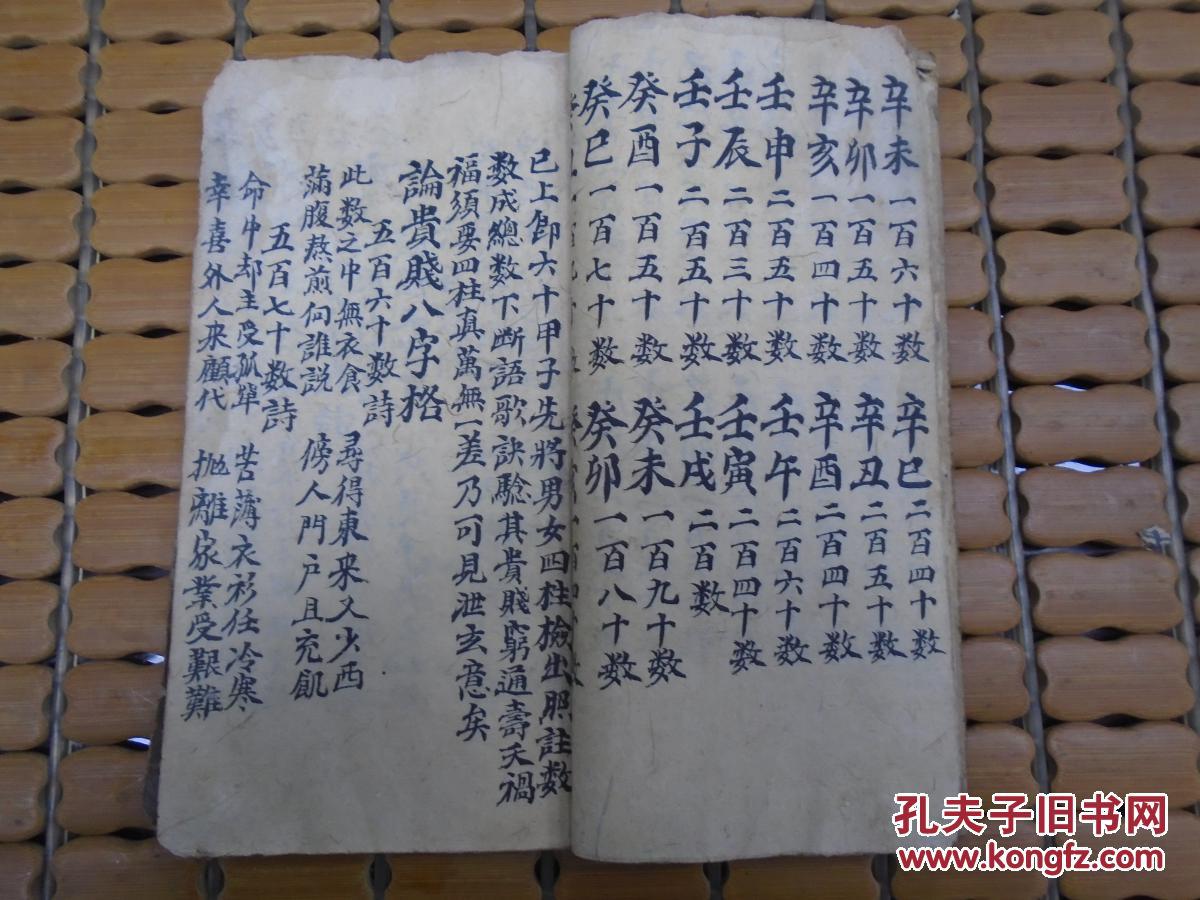 辛未一百六十数 辛巳二百四十数
辛卯一百五十数 辛丑二百五十数
辛亥一百四十数 辛酉二百四十数
壬申二百五十数 壬午二百六十数
壬辰二百三十数 壬寅二百四十数
壬子二百五十数 壬戌二百数
癸酉一百五十数 癸未一百九十数
癸巳一百七十数 癸卯一百八十数
已上即六十甲子先將男女四柱檢出照註数
数成總数下断語歌訣驗其貴賤窮通壽夭禍
福須要四柱真萬無一差乃可見泄玄意矣
論貴賤八字格
五百六十数詩
此数之中無衣食 尋得東来又少西
滿腹熬煎向誰説 傍人門戸且充飢
五百七十数詩
命中却主受孤单 苦薄衣衫任冷寒
幸喜外人来顧代 抛離家業受艱難
孔夫子旧书网
www.kongfz.com